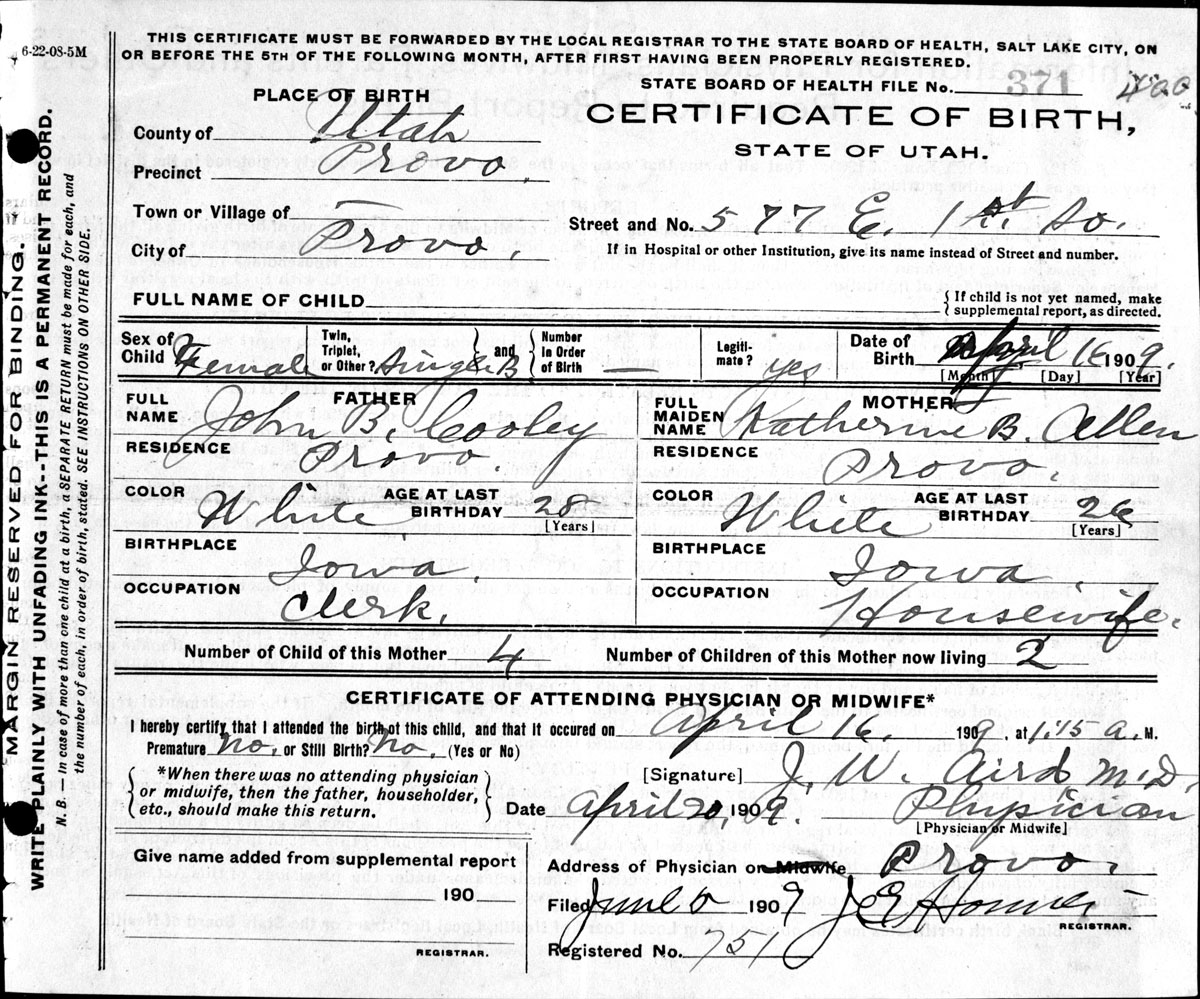 6-22-08-5M
THIS CERTIFICATE MUST BE FORWARDED BY THE LOCAL REGISTRAR TO THE STATE BOARD OF HEALTH, SALT LAKE CITY, ON
OR BEFORE THE 5TH OF THE FOLLOWING MONTH, AFTER FIRST HAVING BEEN PROPERLY REGISTERED.
STATE BOARD OF HEALTH FILE No. 371 400
PLACE OF BIRTH
CERTIFICATE OF BIRTH,
STATE OF UTAH.
County of Utah
Precinct Provo.
Town or Village of —
Street and No. 577 E. 1st So.
City of Provo.
If in Hospital or other Institution, give its name instead of Street and number.
FULL NAME OF CHILD
{ If child is not yet named, make
supplemental report, as directed.
Sex of Child Female
Twin, Triplet, or Other? Single B } and { Number In Order of Birth —
Legiti-mate? yes
Date of Birth April 16 1909.
[Month] [Day] [Year]
FATHER
FULL NAME John B. Cooley
RESIDENCE Provo.
COLOR White AGE AT LAST BIRTHDAY 28
[Years]
BIRTHPLACE Iowa.
OCCUPATION Clerk.
MOTHER
FULL MAIDEN NAME Katherine B. Allen
RESIDENCE Provo.
COLOR White AGE AT LAST BIRTHDAY 26
[Years]
BIRTHPLACE Iowa.
OCCUPATION Housewife.
Number of Child of this Mother 4 Number of Children of this Mother now living 2
CERTIFICATE OF ATTENDING PHYSICIAN OR MIDWIFE*
I hereby certify that I attended the birth of this child, and that it occured on April 16. 1909. at 1:15 a. M.
Premature? No. or Still Birth? No. (Yes or No)
*When there was no attending physician
or midwife, then the father, householder,
etc., should make this return.
[Signature] J. W. Aird M.D.
Date April 20, 1909. Physician
[Physician or Midwife]
Give name added from supplemental report
190
REGISTRAR.
Address of Physician or Midwife Provo.
Filed June 1909
REGISTRAR.
Registered No.
MARGIN RESERVED FOR BINDING.
WRITE PLAINLY WITH UNFADING INK--THIS IS A PERMANENT RECORD.
N. B. — In case of more than one child at a birth, a SEPARATE RETURN must be made for each, and
the number of each, in order of birth, stated. SEE INSTRUCTIONS ON OTHER SIDE.